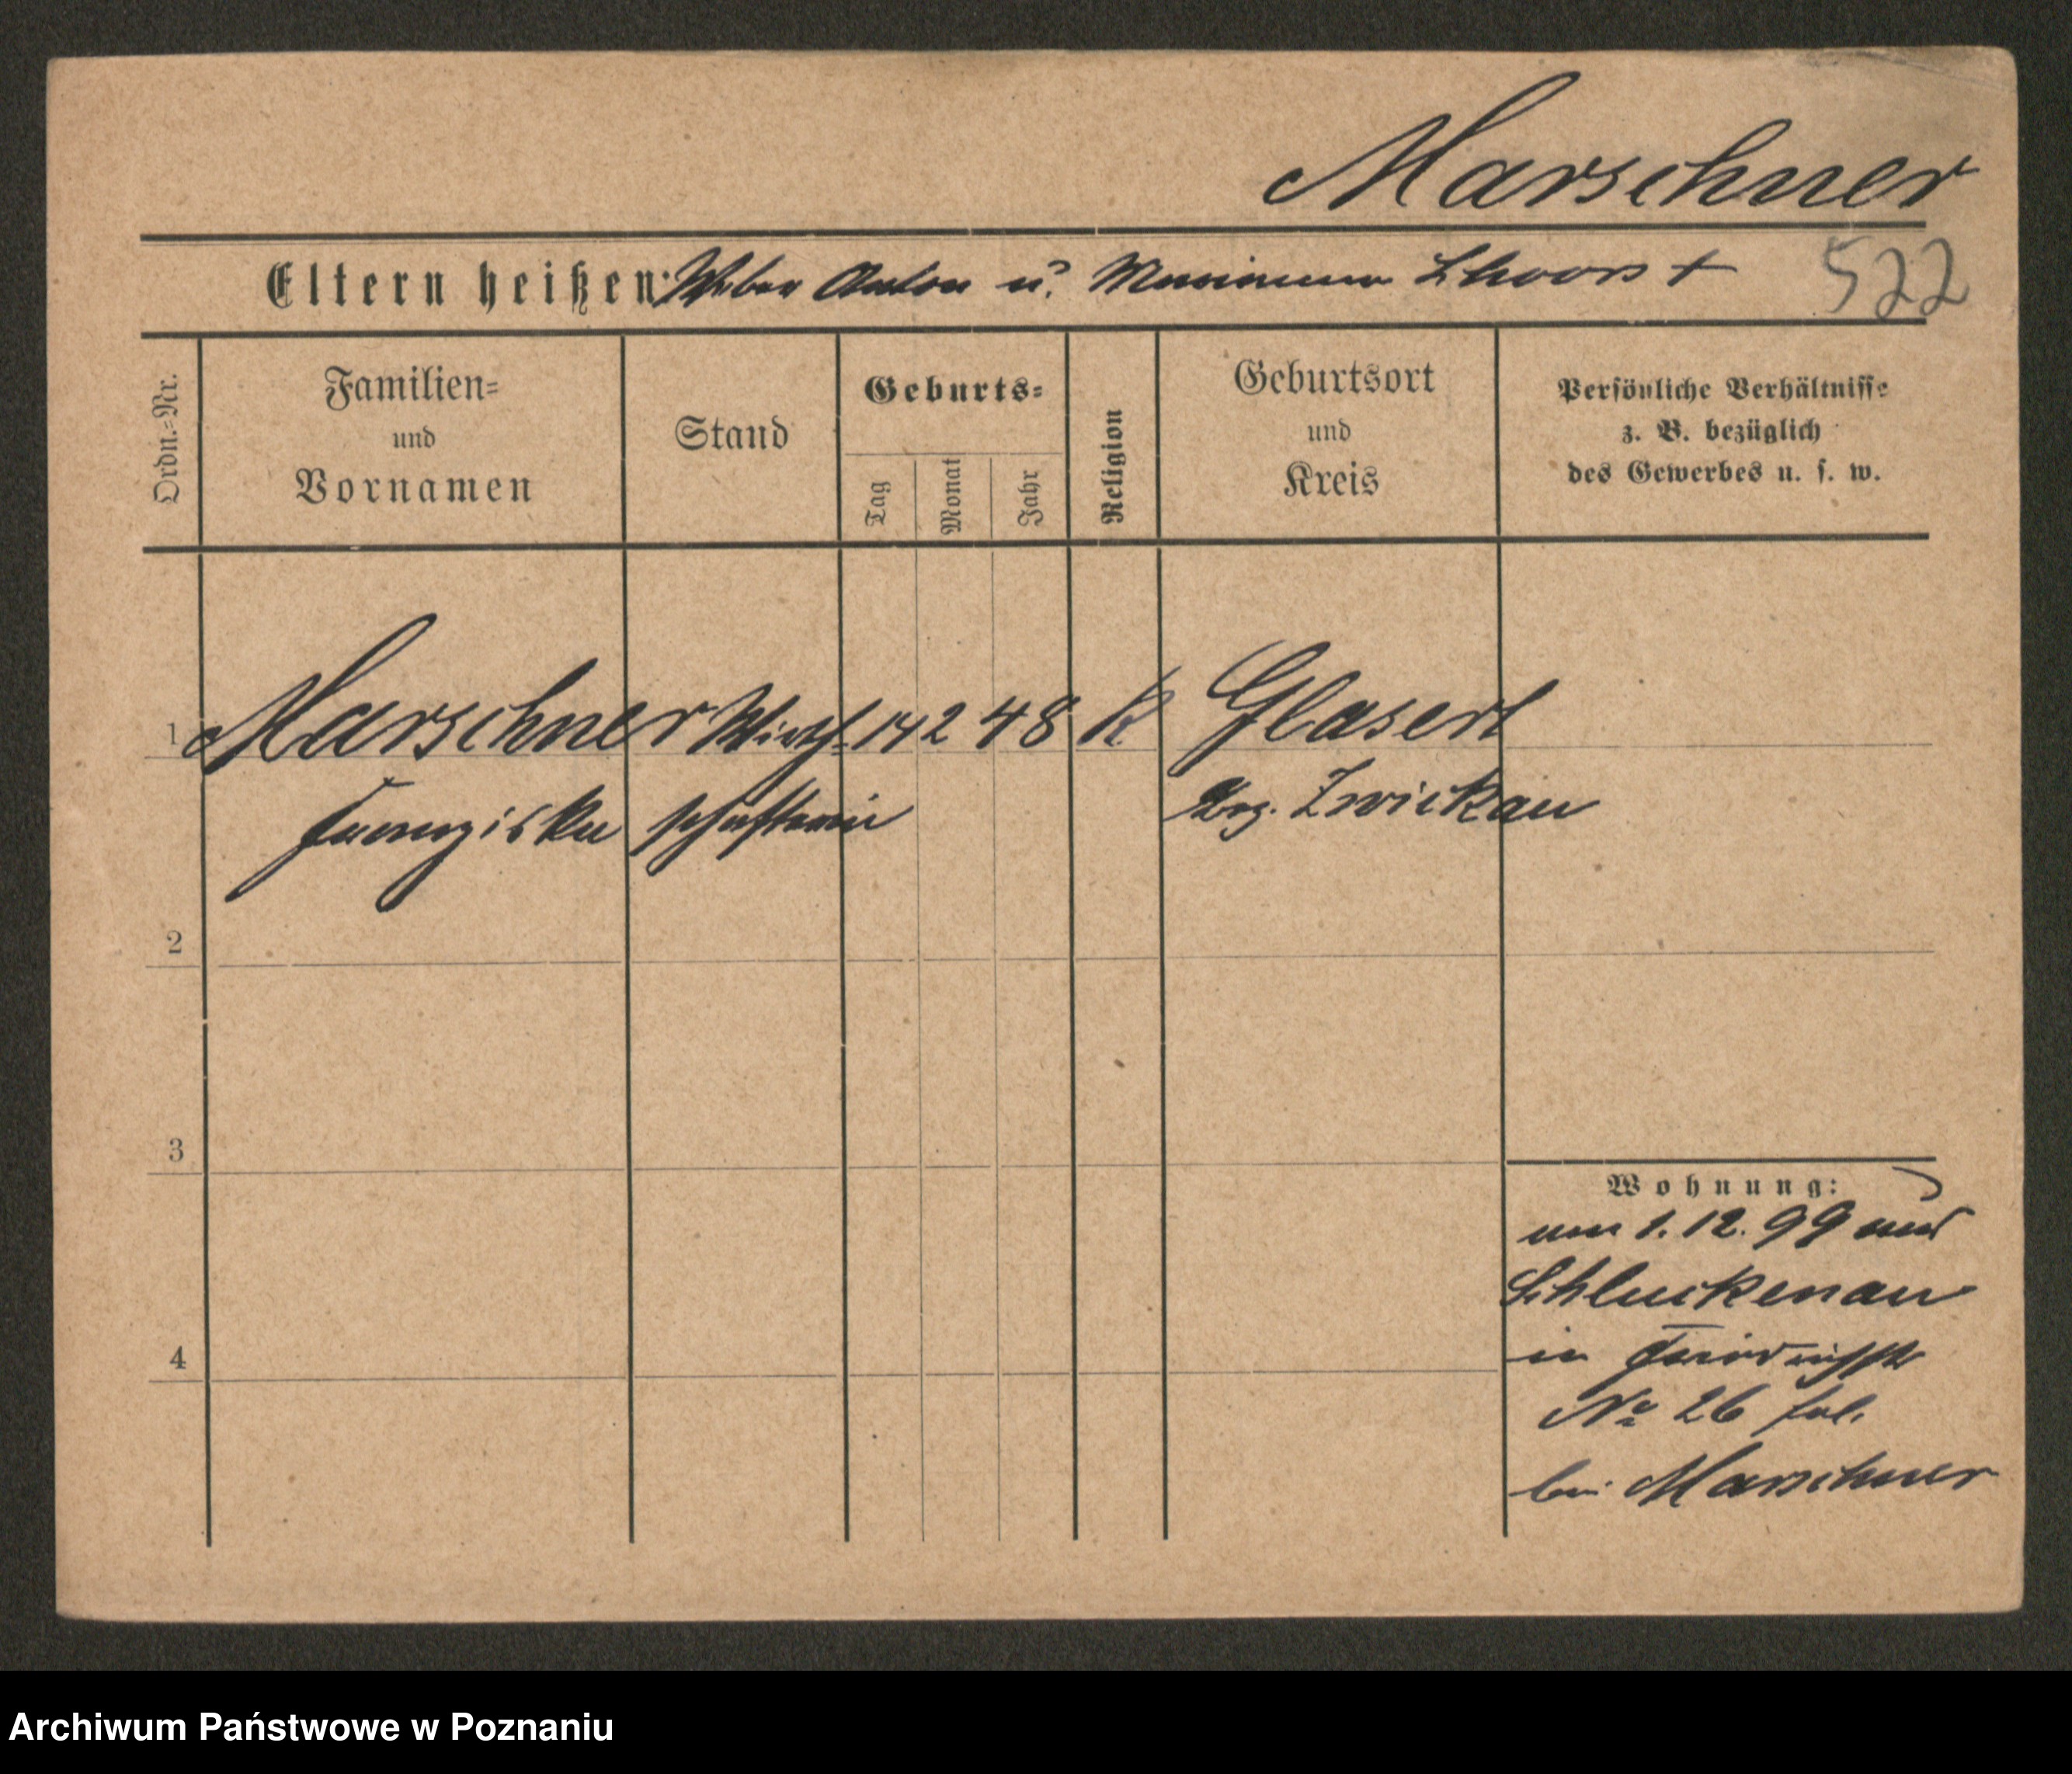 Marschner
Eltern heißen: Weber Anton u. Marianna +
522
Ordn.=Nr.
Familien=
und
Vornamen
Stand
Geburts=
Tag
Monat
Jahr
Religion
Geburtsort
und
Kreis
Persönliche Verhältnisse
z. B. bezüglich
des Gewerbes u. s. w.
1 Marschner Wirth= 14 2 48 K Glasert
Franziska schafterin Bez. Zwickau
2
3
4
Wohnung:
am 1. 12. 99 aus
Schluckenau
in
No 26 bei Marschner